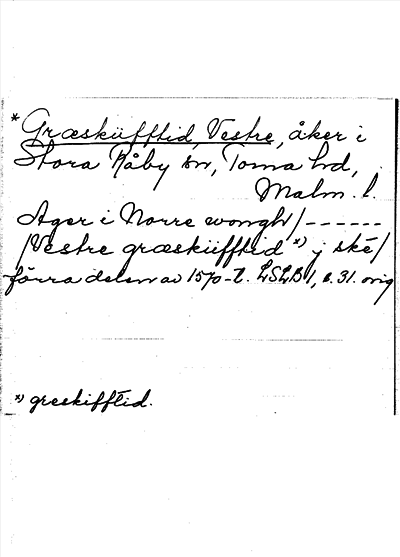 * Græsküfftid, Vestre, åker i
Stora Råby sn, Torna hd,
Malm. l.
Ager i Norre wongh / ------
/ Vestre græsküfftid *) j skē /
förra delen av 1570-t. LSLB 1, s. 31. orig
*) greskifftid.